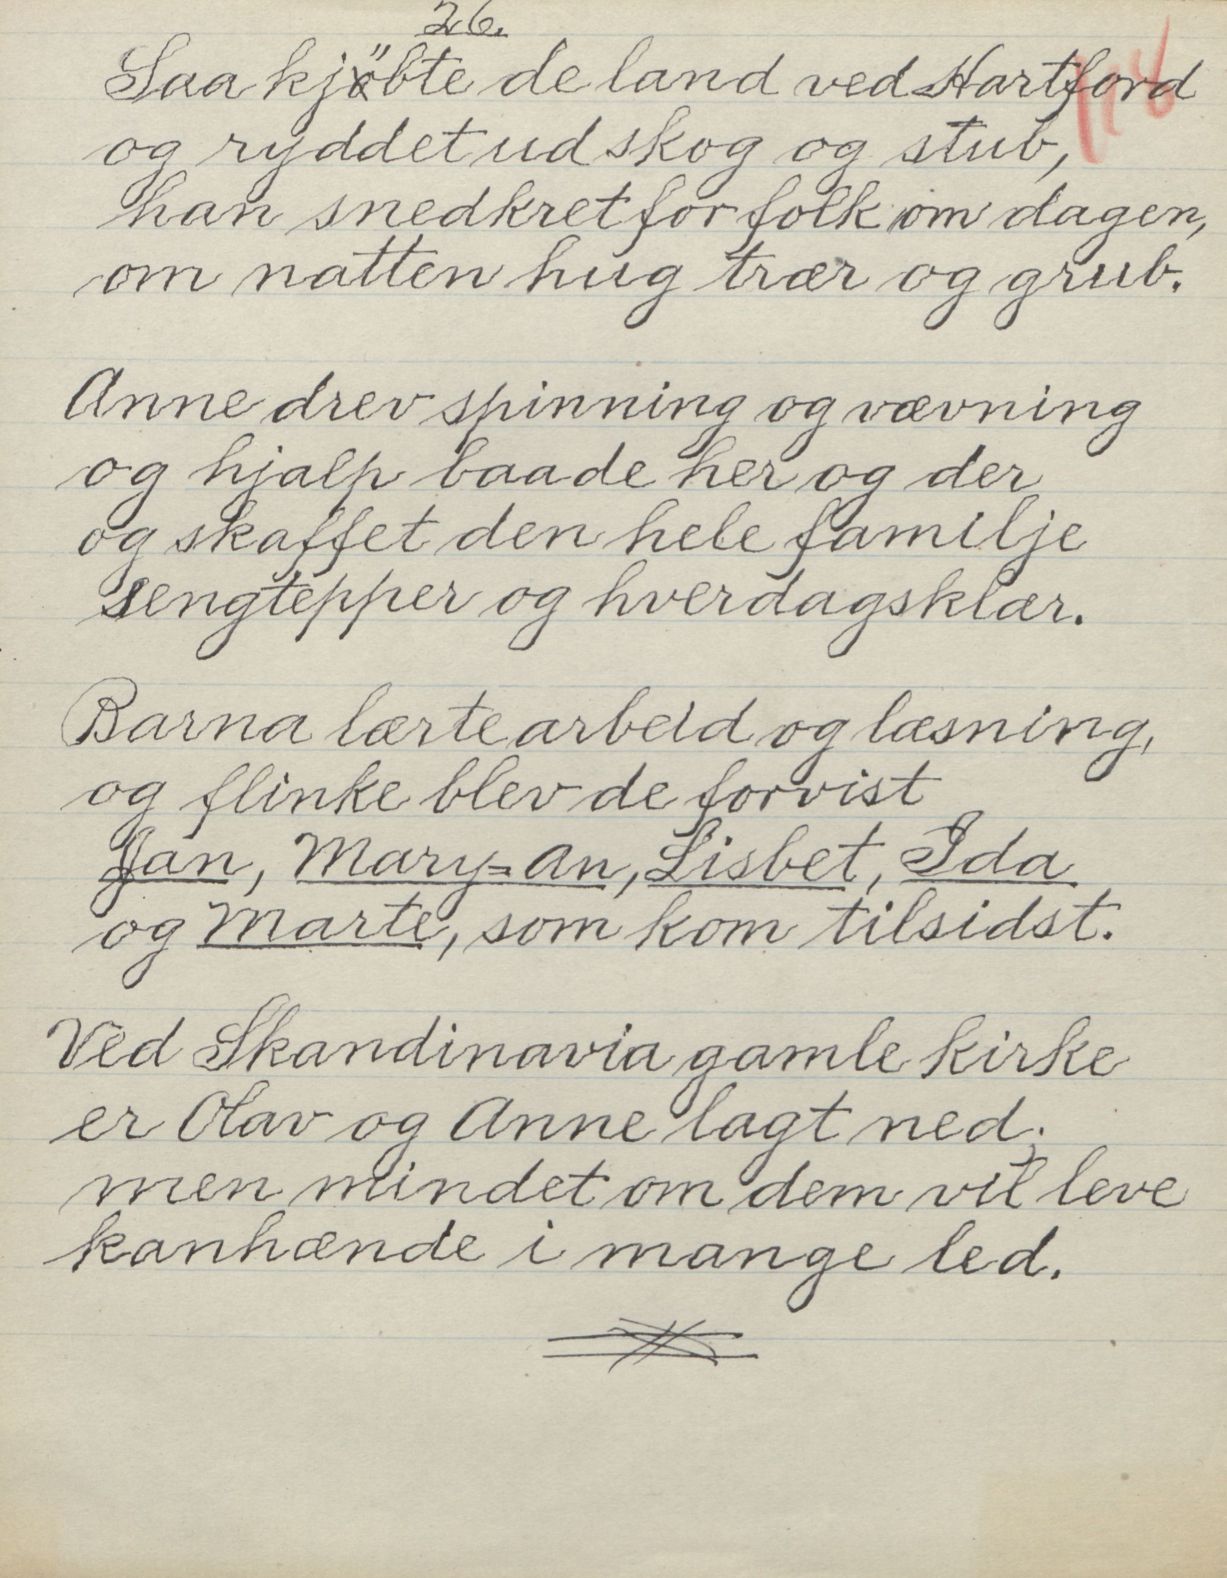 26.
Saa kjöbte de land ved Hartford
og ryddet ud skog og stub,
han snedkret for folk om dagen,
om natten hug trær og grub.
Anne drev spinning og vævning
og hjalp baade her og der
og skaffet den hele familje
sengtepper og hverdagsklær.
Barna lærte arbeid og læsning,
og flinke blev de forvist
Jan, Mary=An, Lisbet, Ida
og Marte, som kom tilsidst.
Ved Skandinavia gamle kirke
er Olav og Anne lagt ned;
men mindet om dem vil leve
kanhænde i mange led.